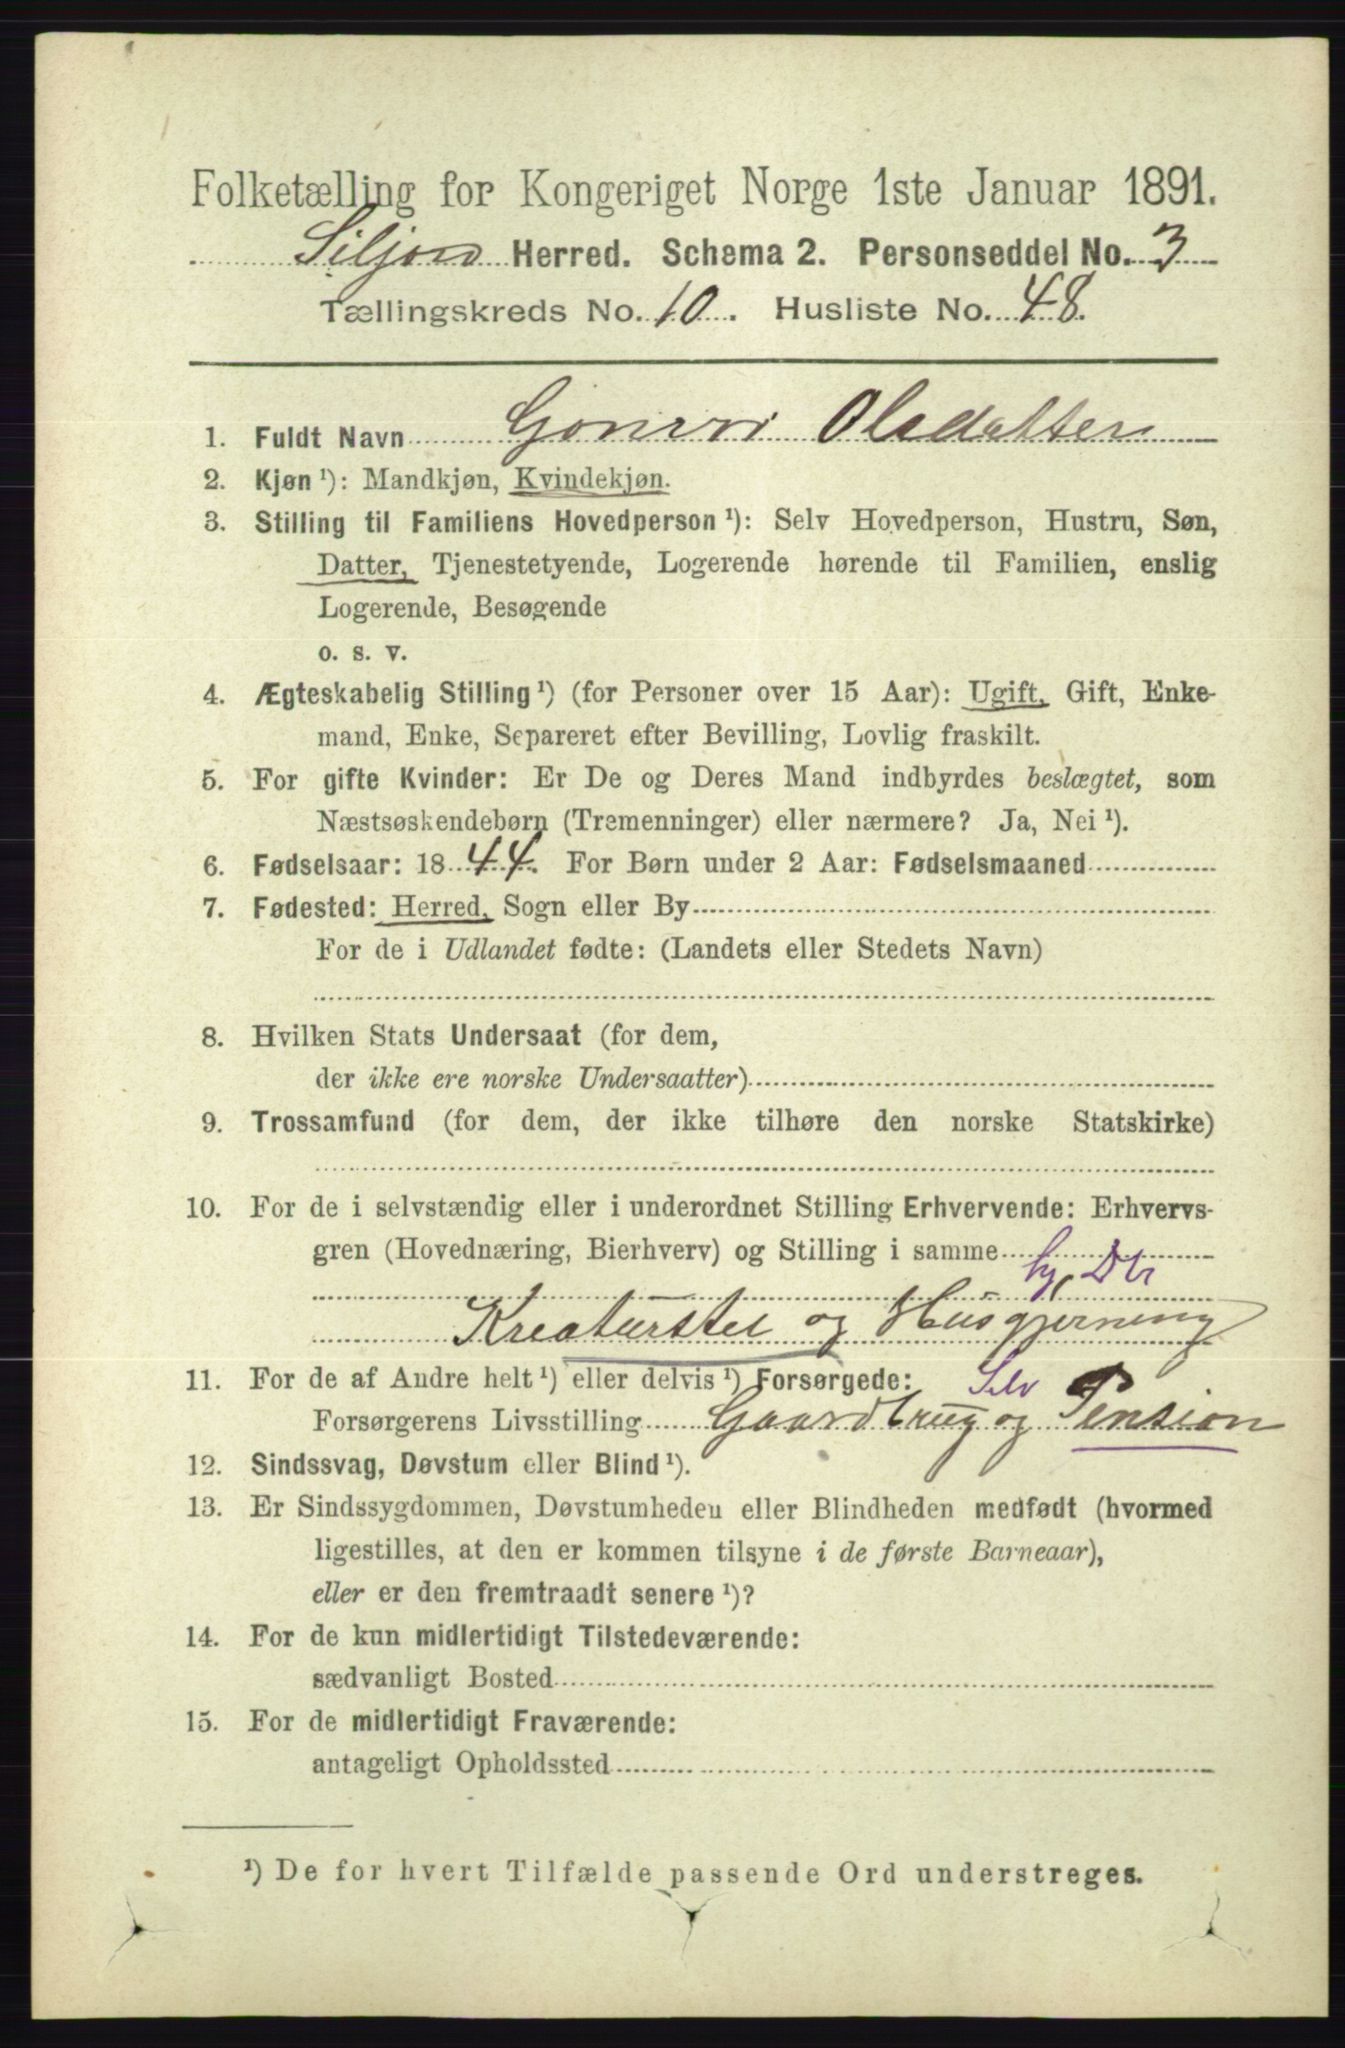 Folketælling for Kongeriget Norge 1ste Januar 1891.
Siljord Herred. Schema 2. Personseddel No. 3
Tællingskreds No. 10. Husliste No. 48.
1. Fuldt Navn Gonvor Olsdatter
2. Kjøn ¹): Mandkjøn, Kvindekjøn.
3. Stilling til Familiens Hovedperson ¹): Selv Hovedperson, Hustru, Søn,
Datter, Tjenestetyende, Logerende hørende til Familien, enslig
Logerende, Besøgende
o. s. v.
4. Ægteskabelig Stilling ¹) (for Personer over 15 Aar): Ugift, Gift, Enke-
mand, Enke, Separeret efter Bevilling, Lovlig fraskilt.
5. For gifte Kvinder: Er De og Deres Mand indbyrdes beslægtet, som
Næstsøskendebørn (Tremenninger) eller nærmere? Ja, Nei ¹).
6. Fødselsaar: 1844. For Børn under 2 Aar: Fødselsmaaned
7. Fødested: Herred, Sogn eller By
For de i Udlandet fødte: (Landets eller Stedets Navn)
8. Hvilken Stats Undersaat (for dem,
der ikke ere norske Undersaatter)
9. Trossamfund (for dem, der ikke tilhøre den norske Statskirke)
10. For de i selvstændig eller i underordnet Stilling Erhvervende: Erhvervs-
gren (Hovednæring, Bierhverv) og Stilling i samme
Kreaturstel og Husgjerning
11. For de af Andre helt ¹) eller delvis ¹) Forsørgede: Selv
Forsørgerens Livsstilling Gaardbrug og Pension
12. Sindssvag, Døvstum eller Blind ¹).
13. Er Sindssygdommen, Døvstumheden eller Blindheden medfødt (hvormed
ligestilles, at den er kommen tilsyne i de første Barneaar),
eller er den fremtraadt senere ¹)?
14. For de kun midlertidigt Tilstedeværende:
sædvanligt Bosted
15. For de midlertidigt Fraværende:
antageligt Opholdssted
¹) De for hvert Tilfælde passende Ord understreges.